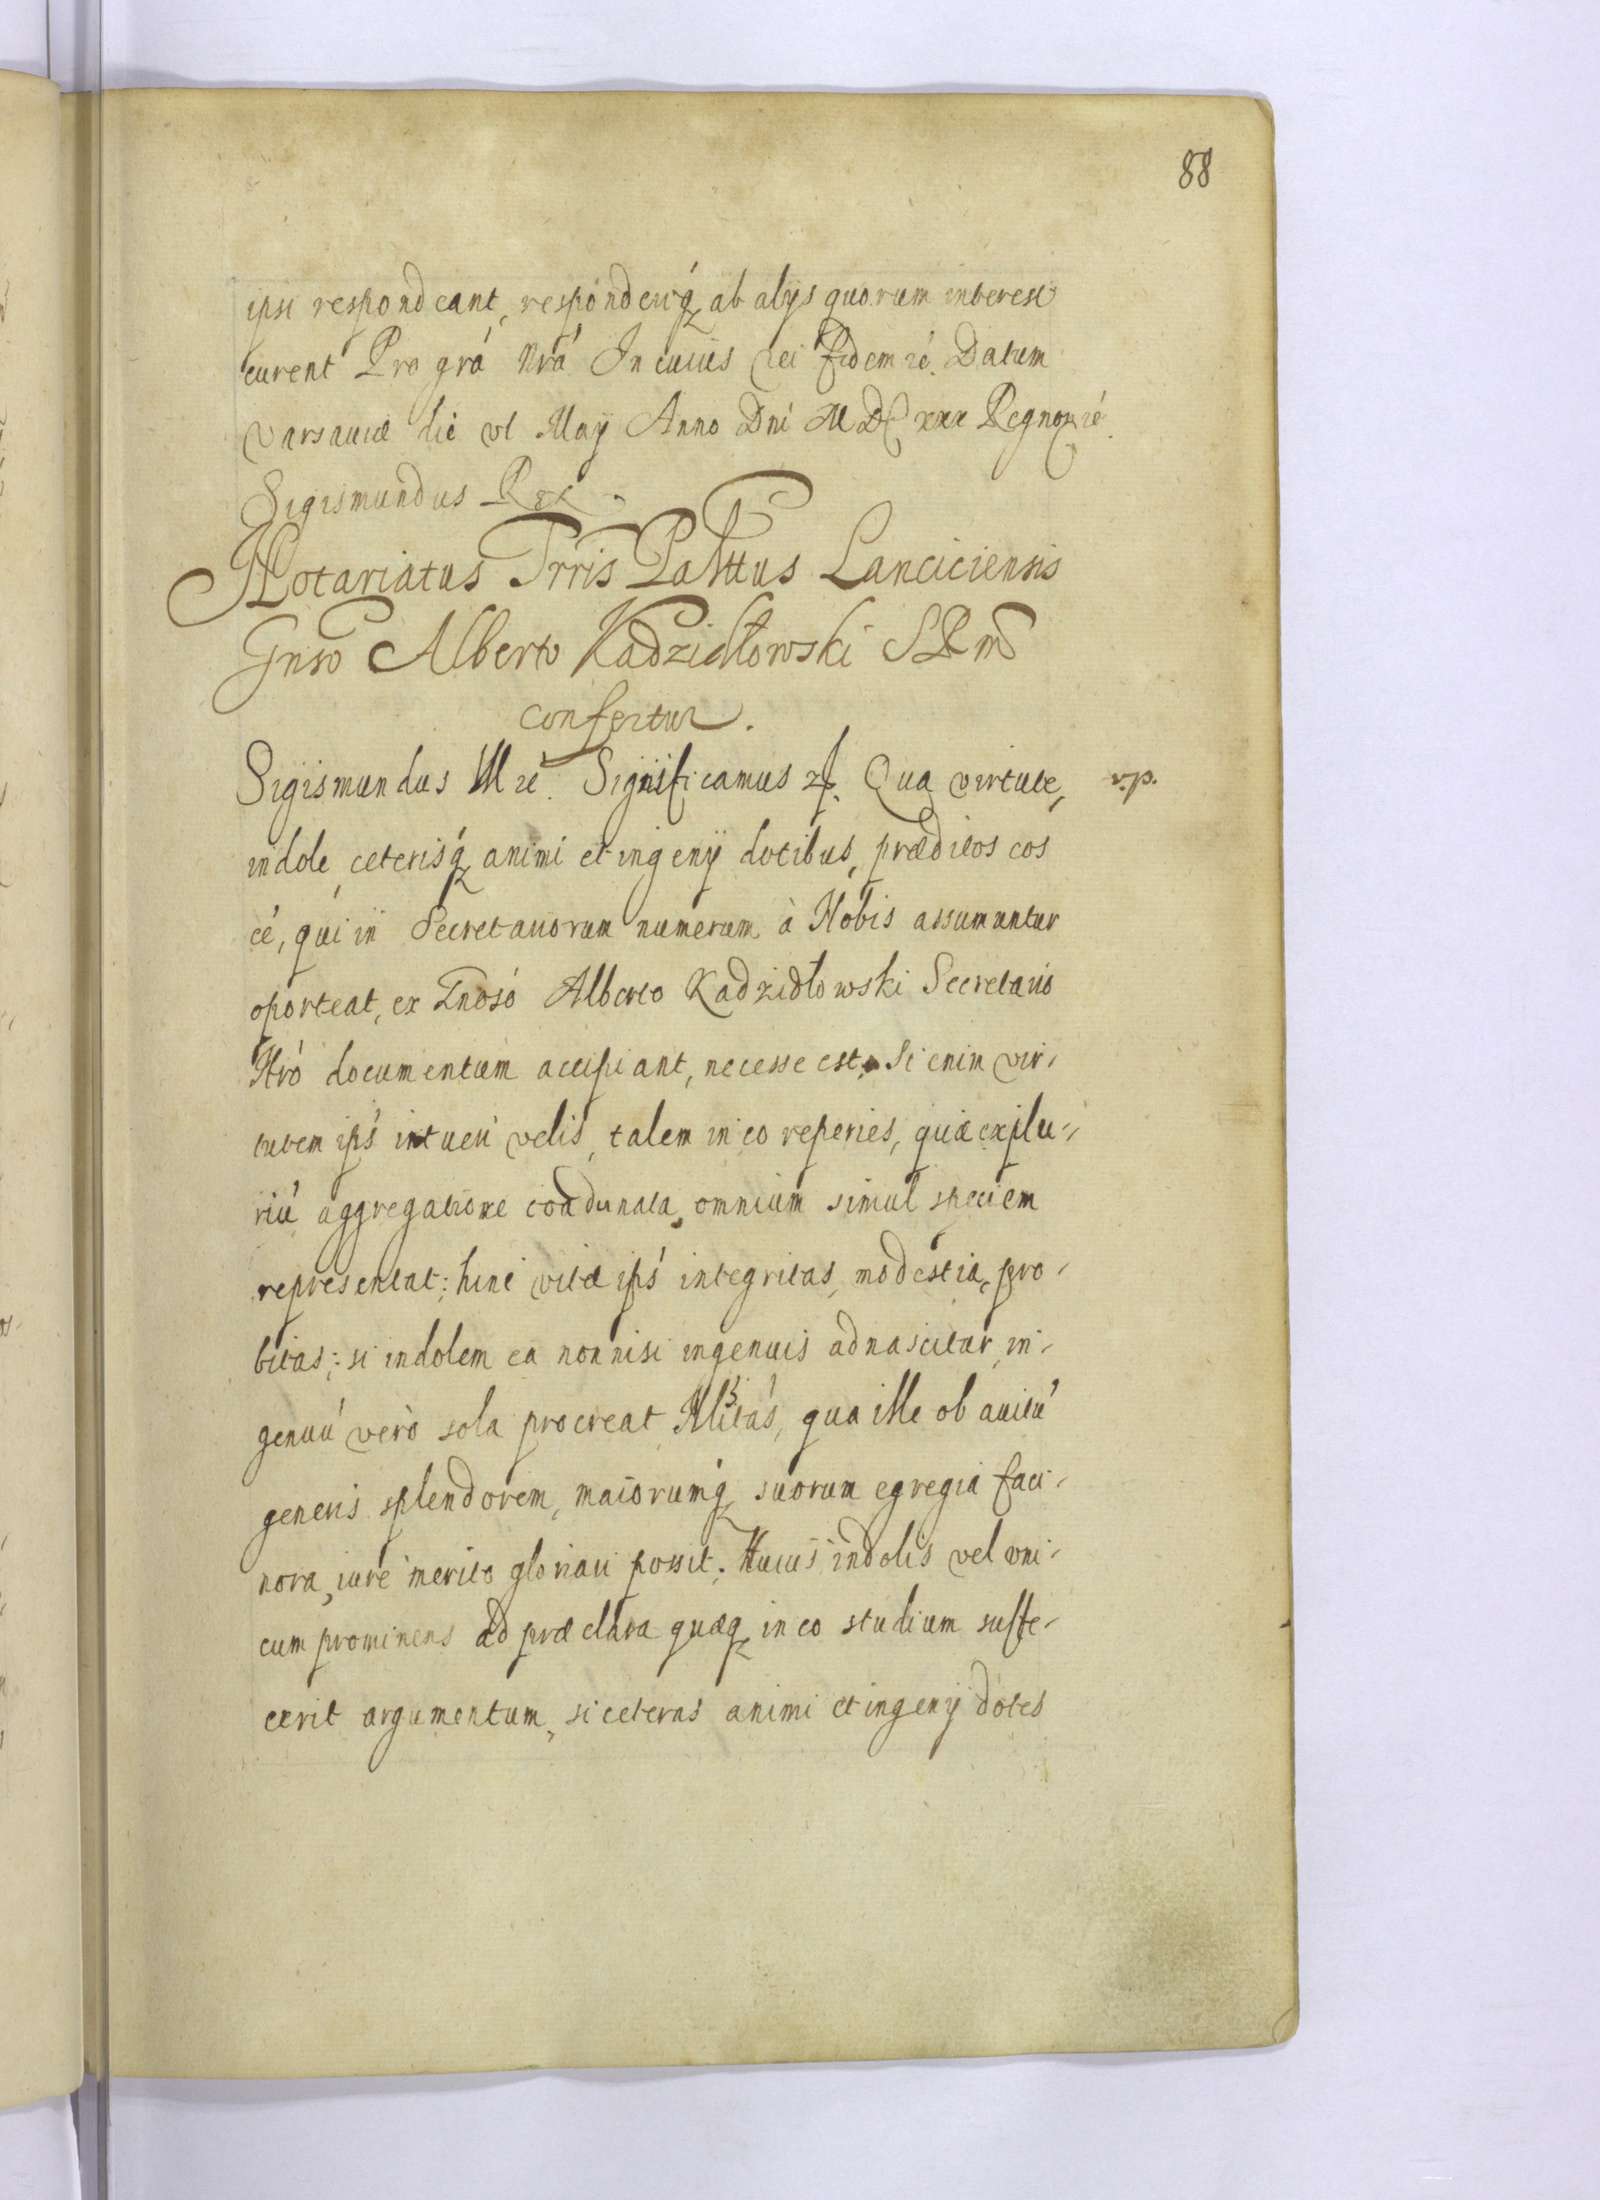 88
ipsi respondeant, responderiq́ ab alijs quorum interest
curent Pro grá Nrá In cuius rei fidem ré. Datum
Varsauiæ die VI Maij Anno Dni MDCXXX Regnor ré.
Sigismundus Rex
Notariatus Trris Palttus Lanciciensis
Gnso Alberto Kadzidłowski SRM
confertur.
Sigismundus III ré. Significamus Qua virtute,
indole, ceterisq́ animi et ingenij dotibus, præditos eos
cé, qui in Secretariorum numerum à Nobis assumuntur
oporteat, ex Gnoso Alberto Kadzidłowski Secretario
Nró documentum accipiant, necesse est. Si enim vir-
tutem ips' intueri velis, talem in eo reperies, quæ ex plu-
riú aggregatione coadunata, omnium simul speciem
representat: hinc vitæ ips' integritas, modestia, pro-
bitas: si indolem ea non nisi ingenuis adnascitur, in-
genuú verò sola procreat Nlitas, qua ille ob auitú
generis splendorem, maiorumq́ suorum egregia faci-
nora, iure merito gloriari possit. Huius indolis vel vni-
cum prominens ad præclara quæq́ in eo studium suffe-
cerit argumentum, si ceteras animi et ingenij dotes